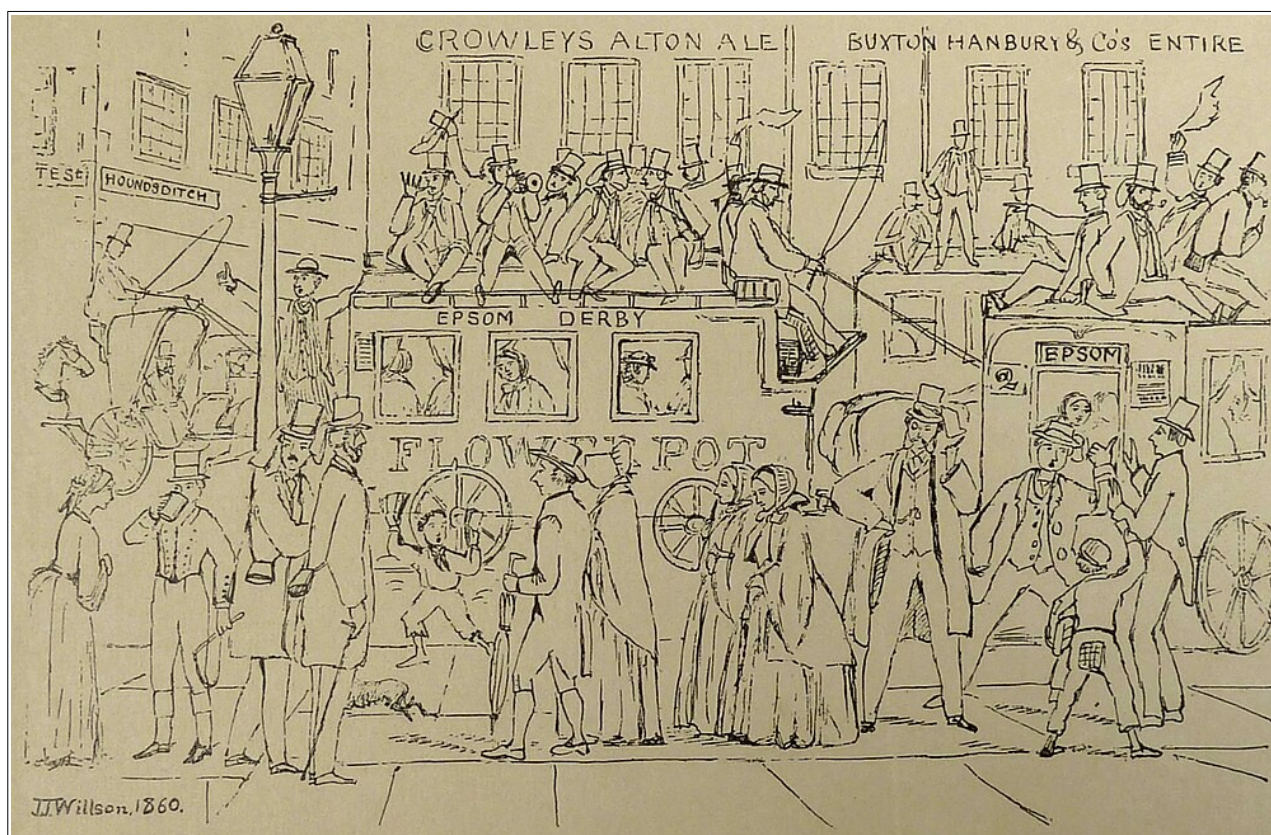 CROWLEYS ALTON ALE
BUXTON HANBURY & Co's ENTIRE
TESt
HOUNDSDITCH
EPSOM DERBY
EPSOM
2
FLOWER POT
J.J. Willson, 1860.